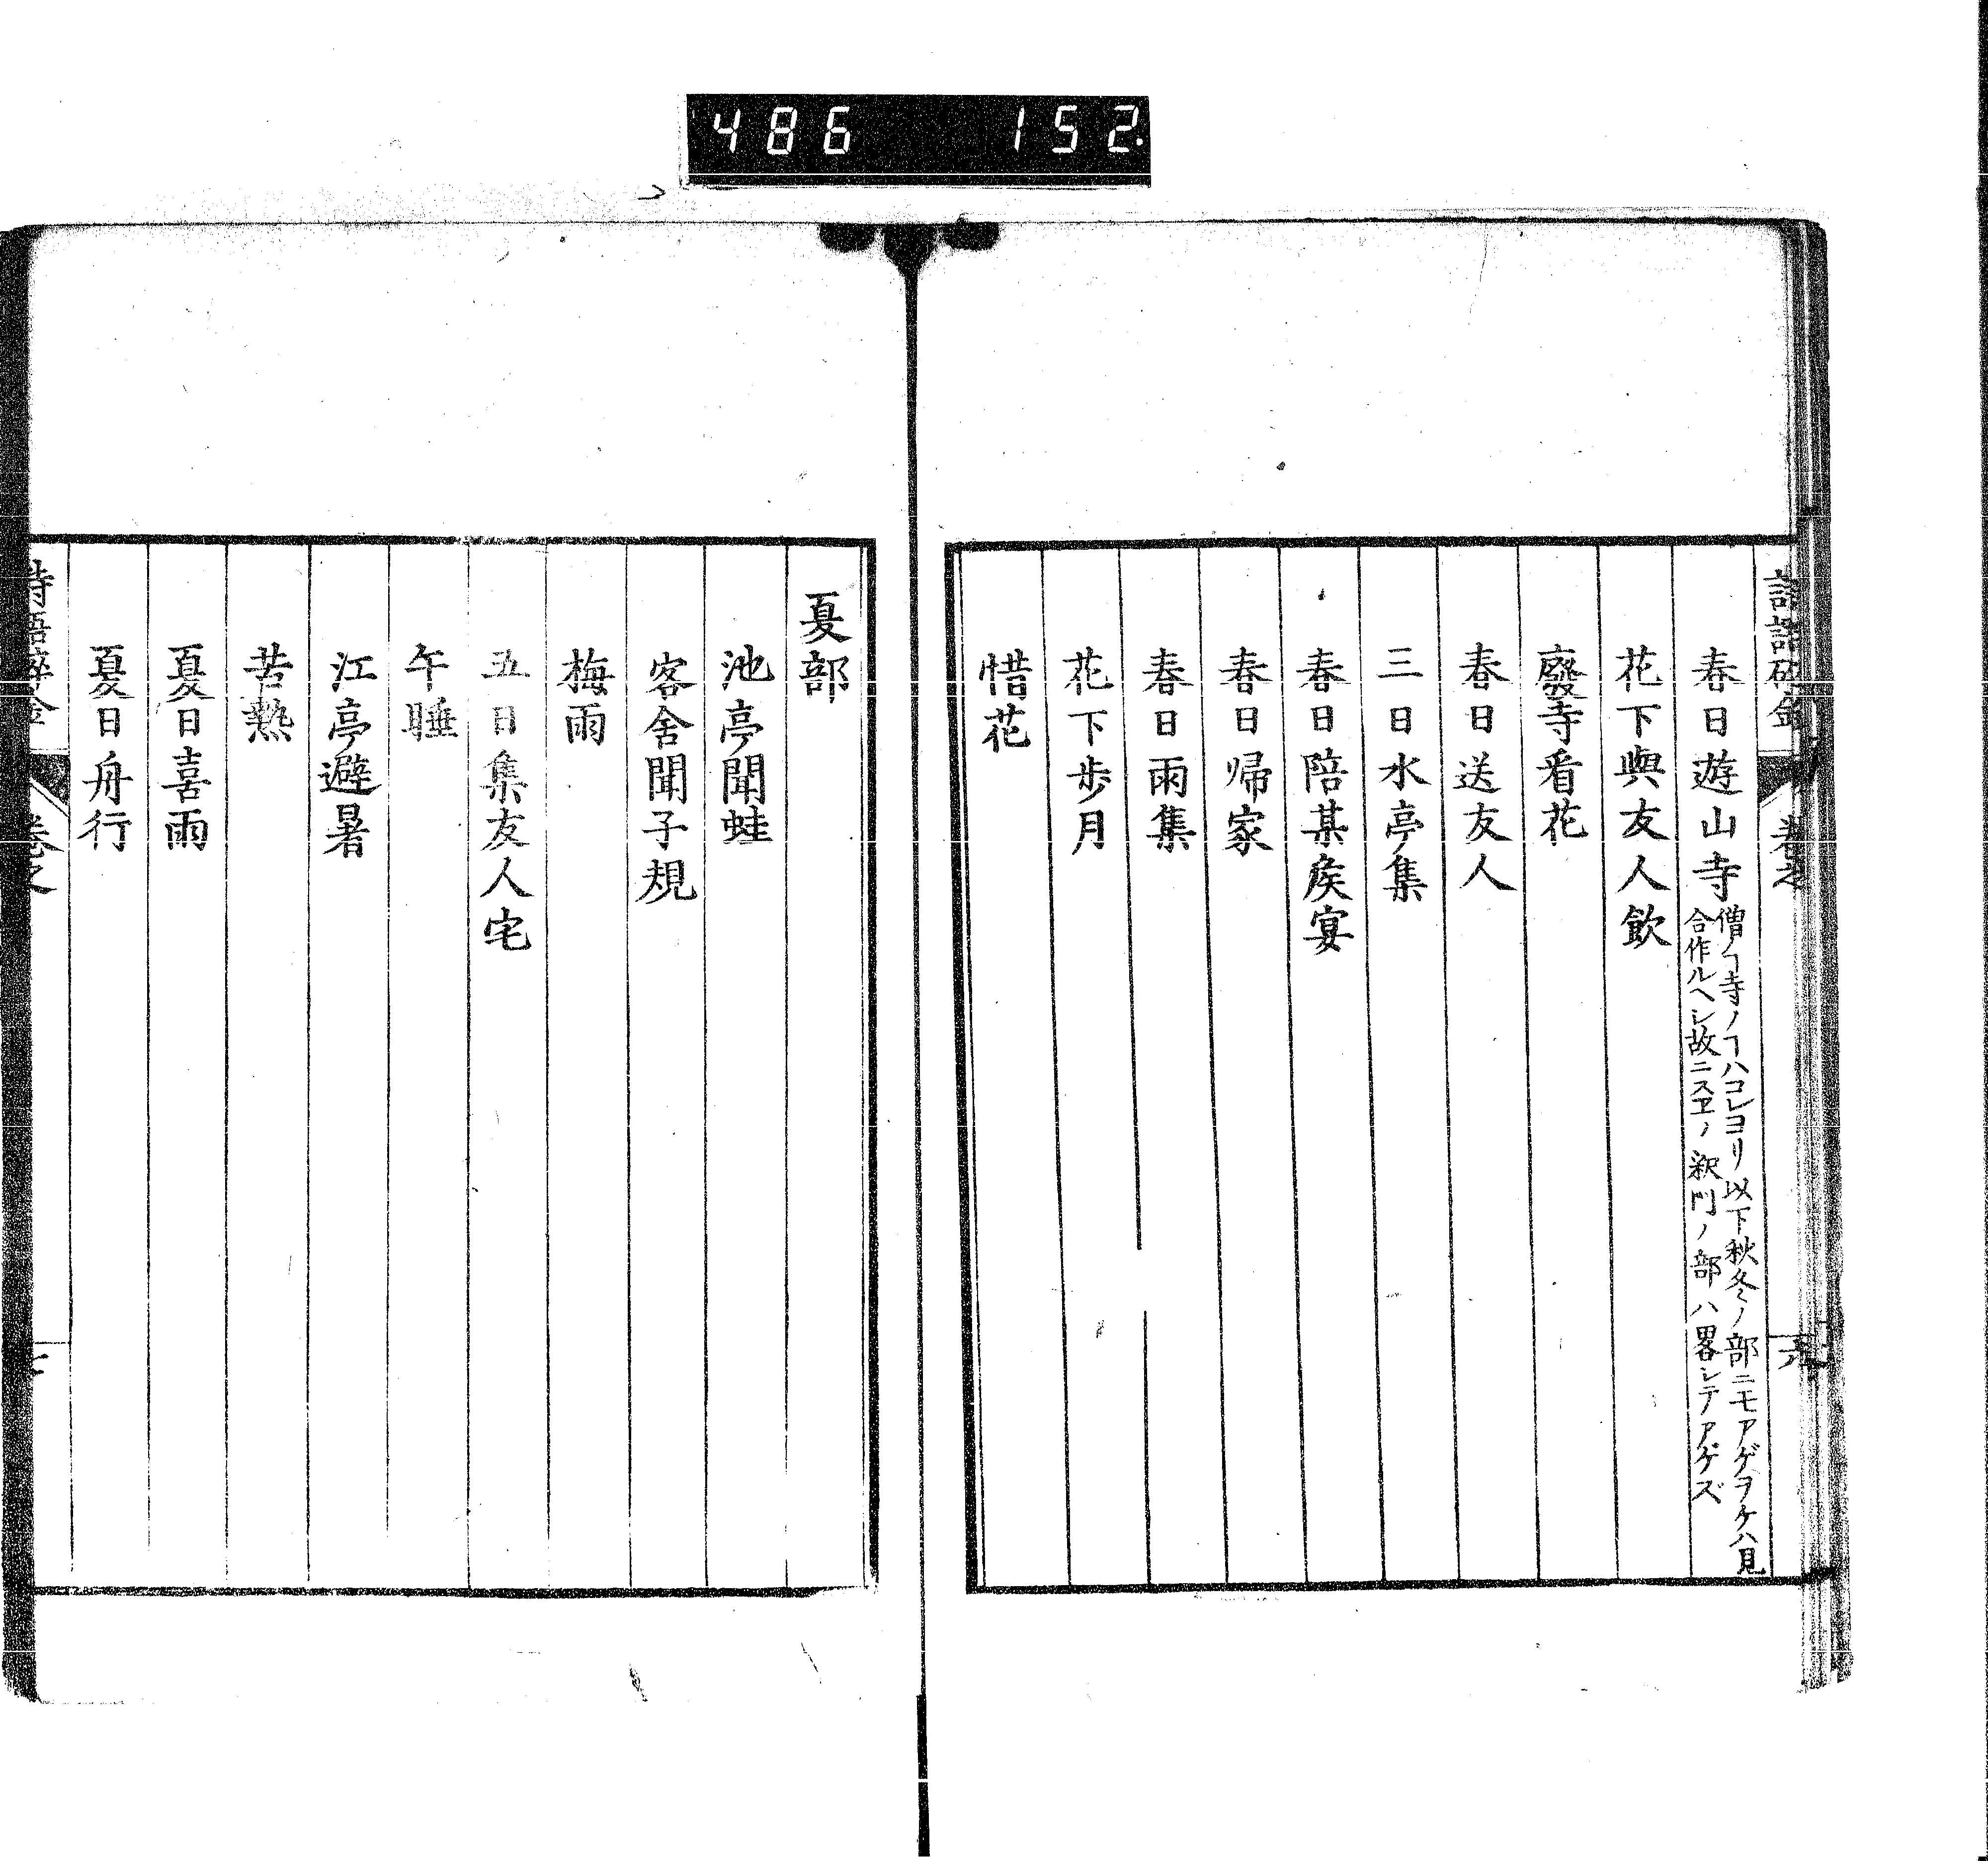 486 152.
春日遊山寺
僧ノヿ寺ノヿハコレヨリ以下秋冬ノ部ニモアゲヲケハ見
合作ルヘシ故ニスヱノ釈門ノ部ハ畧シテアゲズ
花下與友人飲
廢寺看花
春日送友人
三日水亭集
春日陪某矦宴
春日帰家
春日雨集
花下歩月
惜花
夏部
池亭聞蛙
客舍聞子規
梅雨
五日集友人宅
午睡
江亭避暑
苦熱
夏日喜雨
夏日舟行